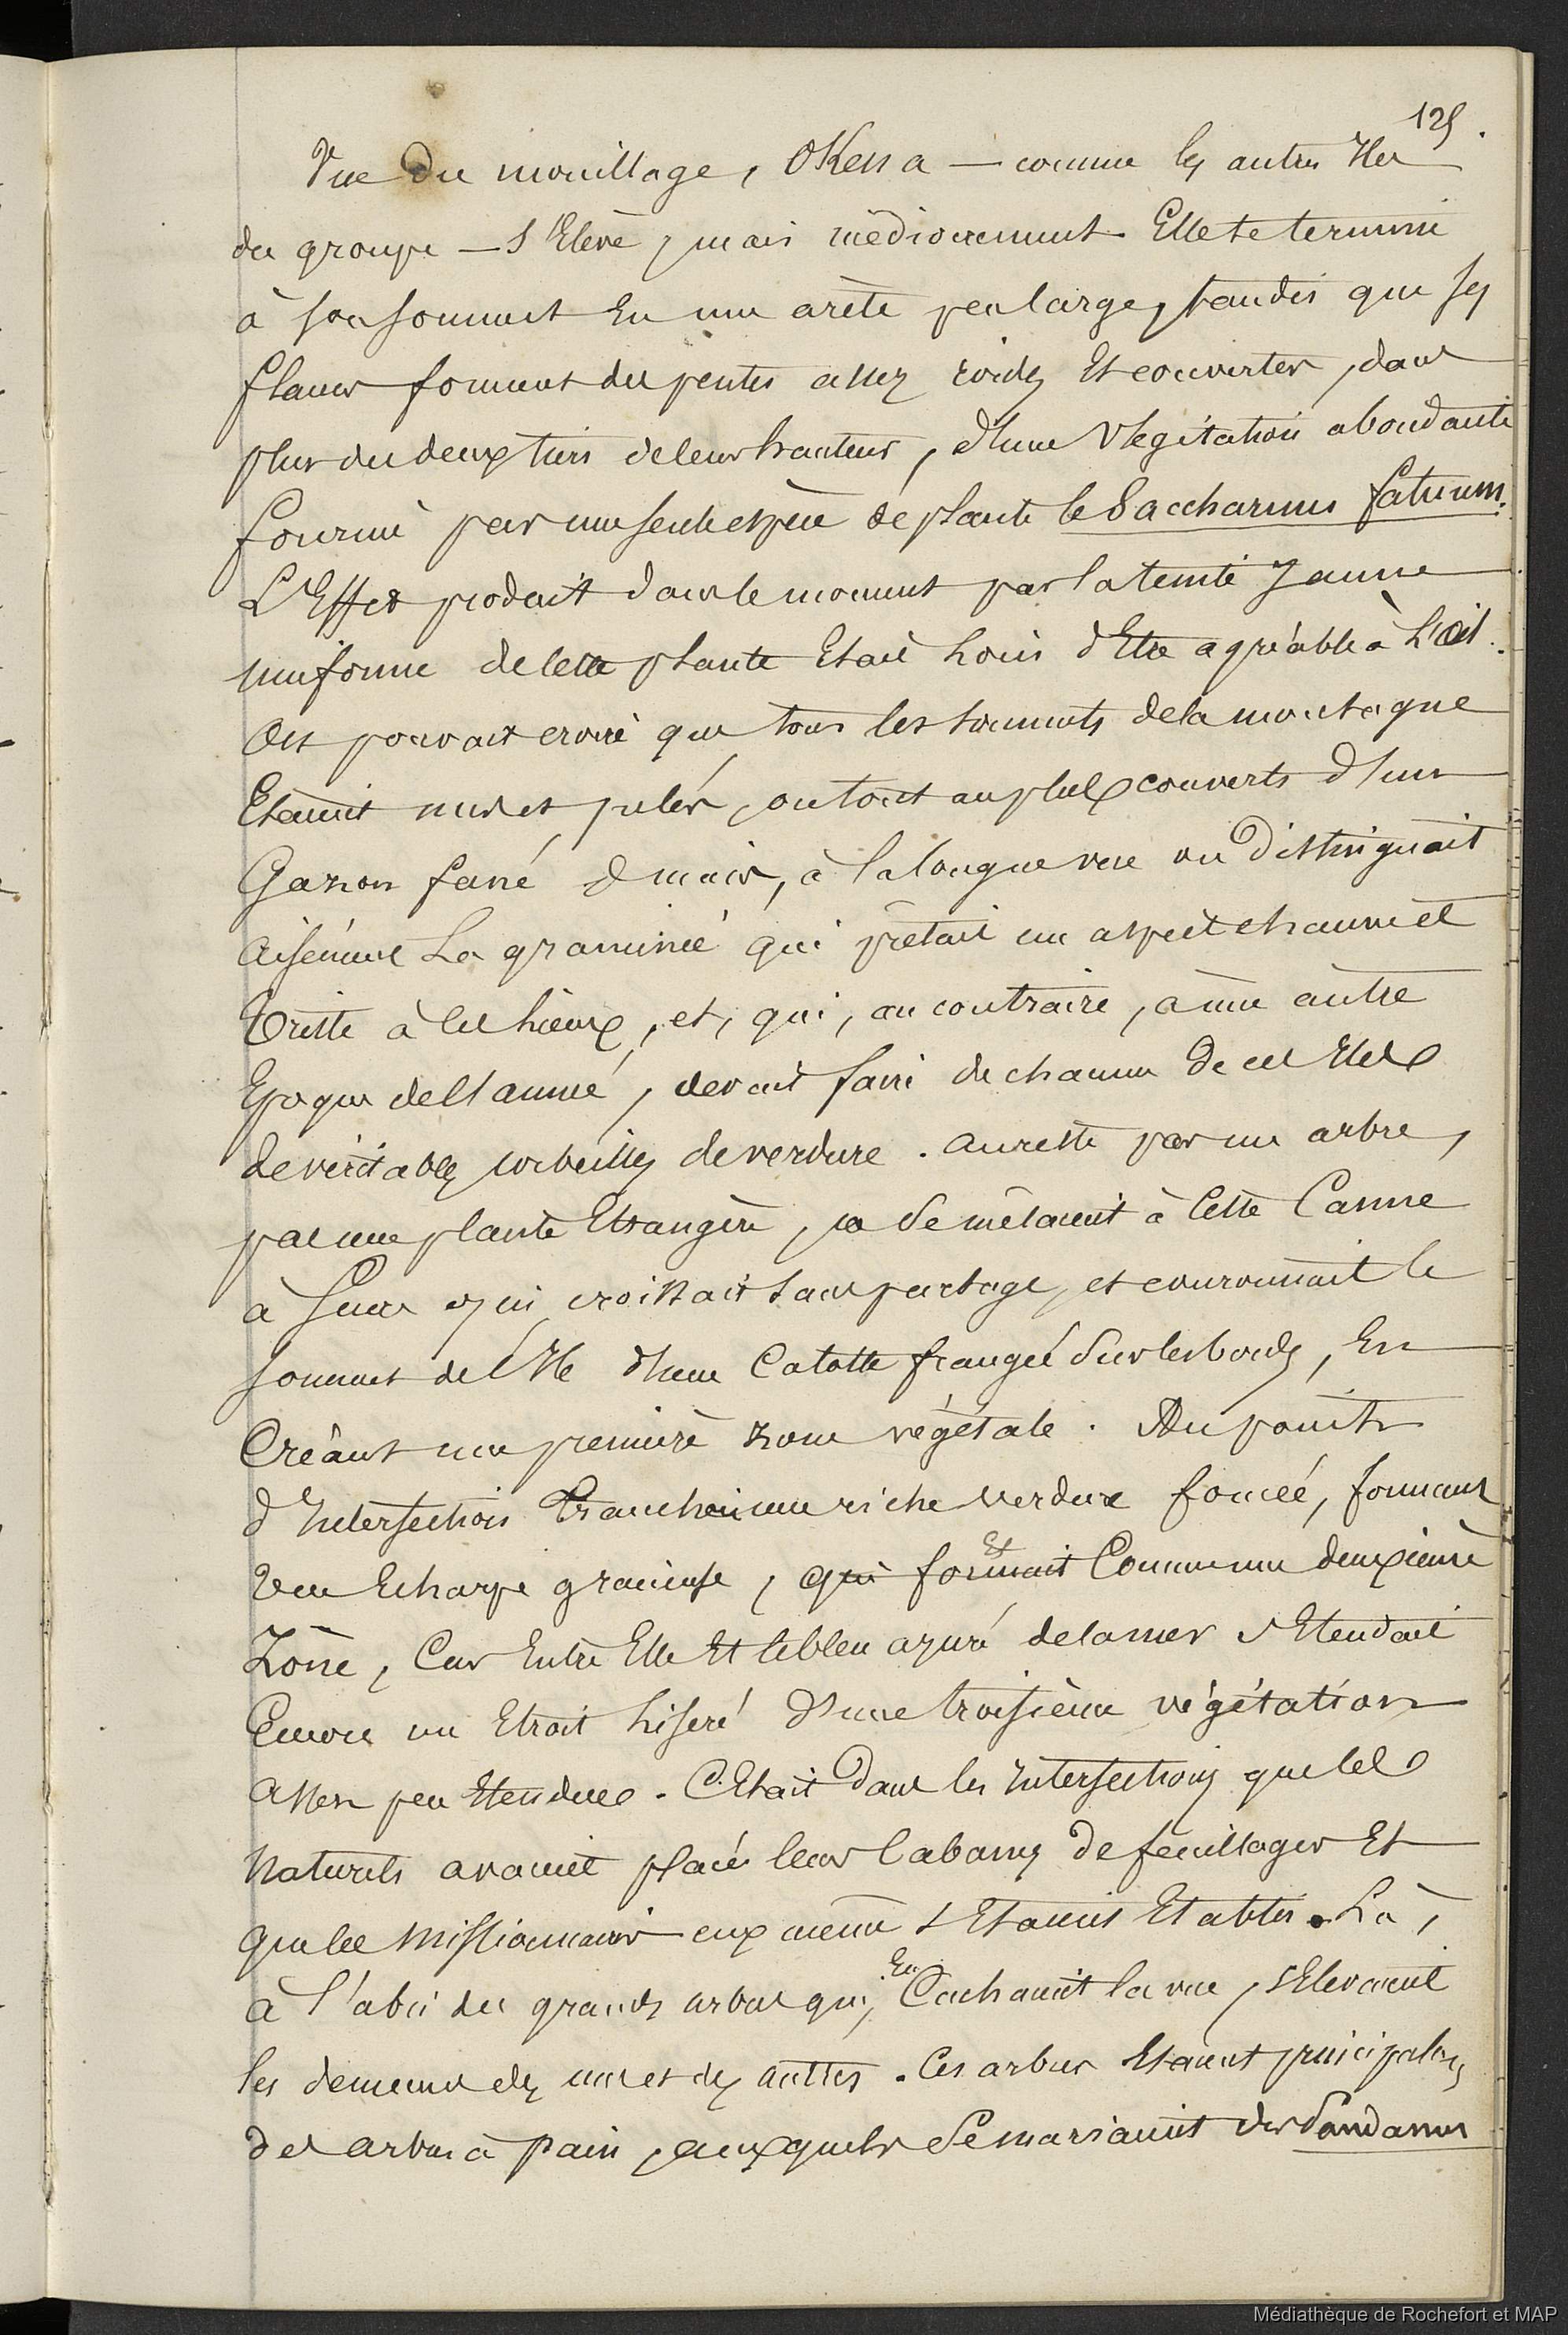 125.
Vue du mouillage, OKena — comme les autres Iles
du groupe — s'Elève, mais médiocrement. Elle se termine
à son sommet En une arète peu large, tandis que ses
flancs forment des pentes assez roides Et couvertes, dans
plus des deux tiers de leur hauteur, d'une Végétation abondante
fournie par une seule espèce de plante le Saccharum fatuum.
L'Effet produit dans le moment par la teinte Jaune
uniforme de cette plante Etait loin d'Etre agréable à L'œil.
On pouvait croire que tous les sommets de la montagne
Etaient nuds et pelés, ou tout au plus couverts d'un
Gazon fané & mais, à la longue vue on distinguait
aisément La graminée qui prêtait un aspect chauve et
triste à ces lieux, et, qui, au contraire, à une autre
Epoque de l'année, devait faire de chacune de ces Iles
de véritables corbeilles de verdure. au reste pas un arbre,
pas une plante Etrangère, ne se mêlaient à Cette Canne
à sucre qui croissait sans partage, et couronnait le
sommet de l'Ile d'une Calotte frangée sur les bords, En
Créant une première zone végétale. Au point
d'Intersection tranchait une riche verdure foncée, formant
une Echarpe gracieuse, qui formait Comme une deuxième
Et
Zône, Car Entre Elle Et le bleu azuré de la mer s'Etendait
Encore un Etroit liseré d'une troisième végétation
assez peu Etendue. C'Etait dans les Intersections que les
Naturels avaient placé leurs Cabanes de feuillages Et
que les Missionnaires eux même s'Etaient Etablis. Là,
En
à l'abri des grands arbres qui, Cachaient la vue, s'Elevaient
les demeures des uns et des autres. Ces arbres Etaient principalem
des arbres à pain, auxquels se mariaient des Pandanus